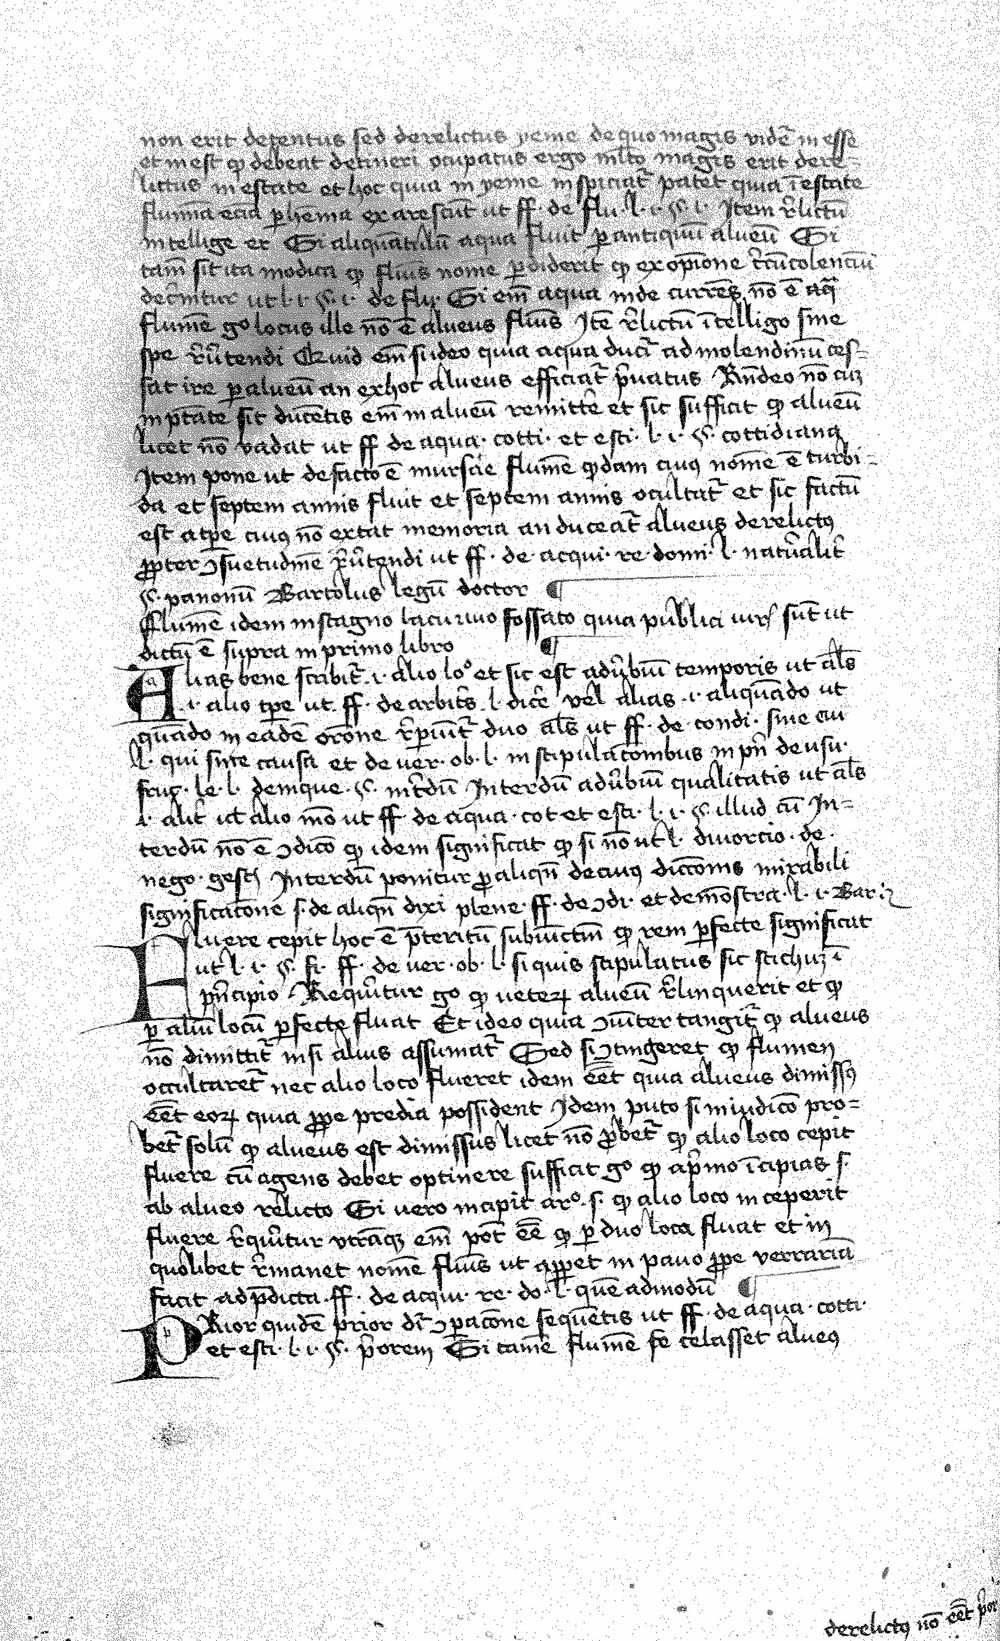 non erit detentus sed derelictus yeme de quo magis vidẽ in esse
et in est ꝙ debeat detineri ocupatus ergo mlto magis erit dere-
lictus in estate et hoc quia in yeme inspiciat᷑ patet quia ĩ estate
flumĩa ecia ꝑ hiema exarescũt ut ff. de flu. l. i. §. i. Item r̃lictũ
intellige et Si aliquãtulũ aqua fluit ꝑ antiquũ alueũ Si
tam̃ sit ita modica ꝙ fluuis̃ nomẽ ꝑdiderit ꝙ ex opĩone c̃cũcolenciũ
det̃mitur ut l. i. §. i. de flu. Si em̃ aqua inde currẽs nõ ẽ aq̃
flumẽ gº locus ille nõ ẽ alueus fluuis̃ Itẽ r̃lictũ ĩtelligo sine
spe r̃ũtendi Quid em̃ si video quia aqua duci᷑ ad molendinũ ces-
sat ire ꝑ alueũ an ex hoc alueus efficiat᷑ p̃uatus Rñdeo nõ cuz
in p̃tate sit ducẽtis em̃ in alueũ remitte᷑ et sic sufficit ꝙ alueũ
licet nõ vadat ut ff de aqua. cotti. et esti. l. i. §. cottidiana
Item pone ut de facto ẽ murscie flumẽ q̃dam cuiꝰ nomẽ ẽ turbi-
da et septem annis fluit et septem annis ocultat᷑ et sic factũ
est a tꝑe cuiꝰ nõ extat memoria an duceat᷑ alueus derelictꝰ
ꝓpter ꝯsuetudinẽ r̃ũtendi ut ff. de acqui. re. domi. l. nat᷑alit᷑
§. panonũ Bartolus legũ doctor ¶
Flumẽ idem in stagno lacu riuo fossato quia publici iurꝭ sũt ut
dictũ ẽ supra in primo libro ¶
Alias bene scribit᷑ .i. alio loº et sic est adũbiũ temporis ut al̃s
.i. alio tꝑe ut ff. de arbit᷑s. l. dice᷑ vel alias .i. aliquãdo ut
quãdo in eadẽ orõne r̃ꝑiũt᷑ duo al̃s ut ff. de condi. sine cui
l. qui sine causa et de ver. ob. l. in stipulacõnibus in pñ de usu.
fruc. le. l. denique. §. int᷑dũ Interdũ adũbiũ qualitatis ut al̃s
.i. alit᷑ ul̃ alio mõ ut ff de aqua. cot et esti. l. i. §. illud cũ In-
terdũ nõ ẽ ꝯdicõ ꝙ idem significat ꝙ si nõ ut l. diuorcio. de.
nego. gestꝭ Interdũ ponitur ꝓ aliqñ de cuiꝰ diccõnis mirabili
significacõne s. de aliqñ dixi plene. ff. de ꝯdi. et demõstra. l. i. Bar.
Fluere cepit hoc ẽ p̃teritũ subiũctiuũ ꝙ rem ꝑfecte significat
ut l. i. §. si. ff. de ver. ob. l. si quis stipulatus sic stichuz ĩ
p̃ncipio Requi᷑itur gº ꝙ ueteꝝ alueũ r̃linquerit et ꝙ
ꝑ aliũ locũ ꝑfecte fluat Et ideo quia ꝯiũter tangit᷑ ꝙ alueus
nõ dimittit᷑ nisi alius assumat᷑ Sed si ꝯtingeret ꝙ flumen
occultaret᷑ nec alio loco flueret idem ẽẽt quia alueus dimissꝰ
ẽẽt eoꝝ quia ꝓpe predia possident Idem puto si in iudicõ pro-
bet᷑ solũ ꝙ alueus est dimissus licet nõ ꝓbet᷑ ꝙ alio loco cepit
fluere cũ agens debet optinere sufficit gº ꝙ a p̃mo ĩcipias s.
ab alueo relicto Si uero incipit arº. s. ꝙ alio loco inceperit
fluere r̃qui᷑itur vtrãqꝫ em̃ pot̃ ẽẽ ꝙ ꝑ duo loca fluat et in
quolibet r̃manet nomẽ fluuis̃ ut apꝑet in pauo ꝓpe verrariã
facit ad p̃dicta. ff. de acqui. re. do. l. quẽ admodũ ¶
PRior quidẽ prior dr̃ ꝯꝑacõne sequẽtis ut ff. de aqua. cotti.
et esti. l. i. §. p᷑orem Si tamẽ flumẽ se celasset alueꝰ
derelictꝰ nõ ẽẽt p᷑or